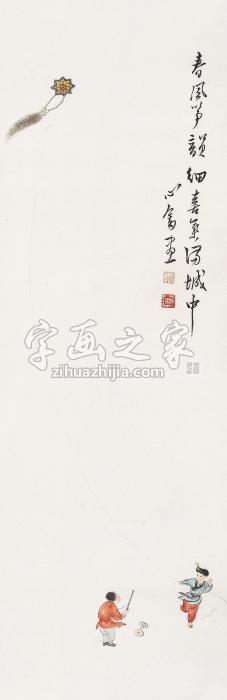 春風箏韻細喜氣滿城中
心畬畫
字画之家
zihuazhijia.com